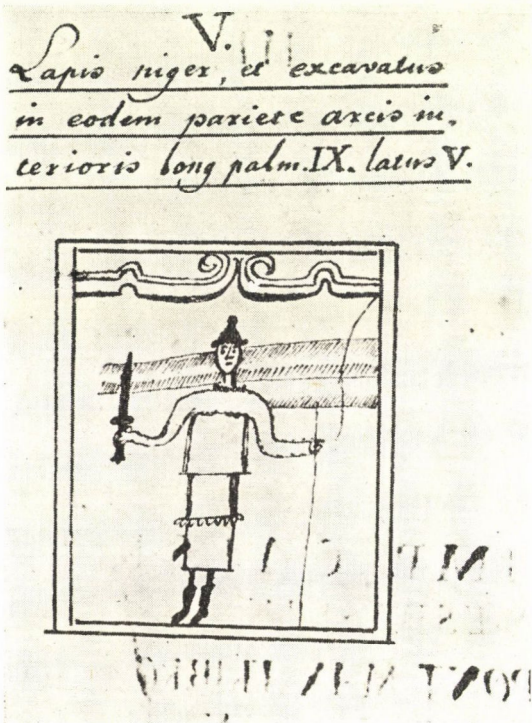 V.
Lapis niger, et excavatus
in eodem pariete arcis in-
terioris long palm. IX. latus V.